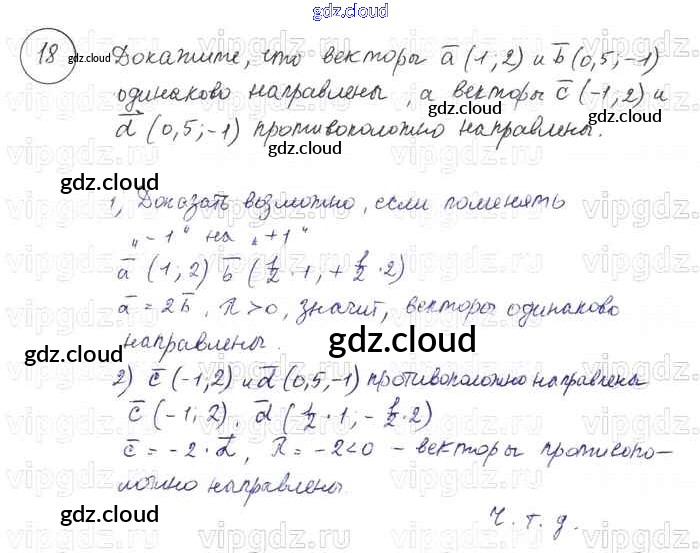 gdz.cloud
18 gdz.cloud Докажите, что векторы a̅ (1; 2) и b̅ (0,5; -1)
одинаково направлены, а векторы c̅ (-1; 2) и
d̅ (0,5; -1) противоположно направлены.
gdz.cloud
gdz.cloud
1, Доказать возможно, если поменять
„-1" на „+1"
a̅ (1; 2) b̅ (1/2 · 1; + 1/2 · 2)
a̅ = 2b̅, λ > 0, значит, векторы одинаково
направлены.
gdz.cloud
gdz.cloud
2) c̅ (-1; 2) и d̅ (0,5; -1) противоположно направлена
c̅ (-1; 2), d̅ (1/2 · 1; - 1/2 · 2)
c̅ = -2 · d̅, λ = -2 < 0 – векторы противопо-
ложно направлены.
gdz.cloud
gdz.cloud
Ч. т. д.
gdz.cloud